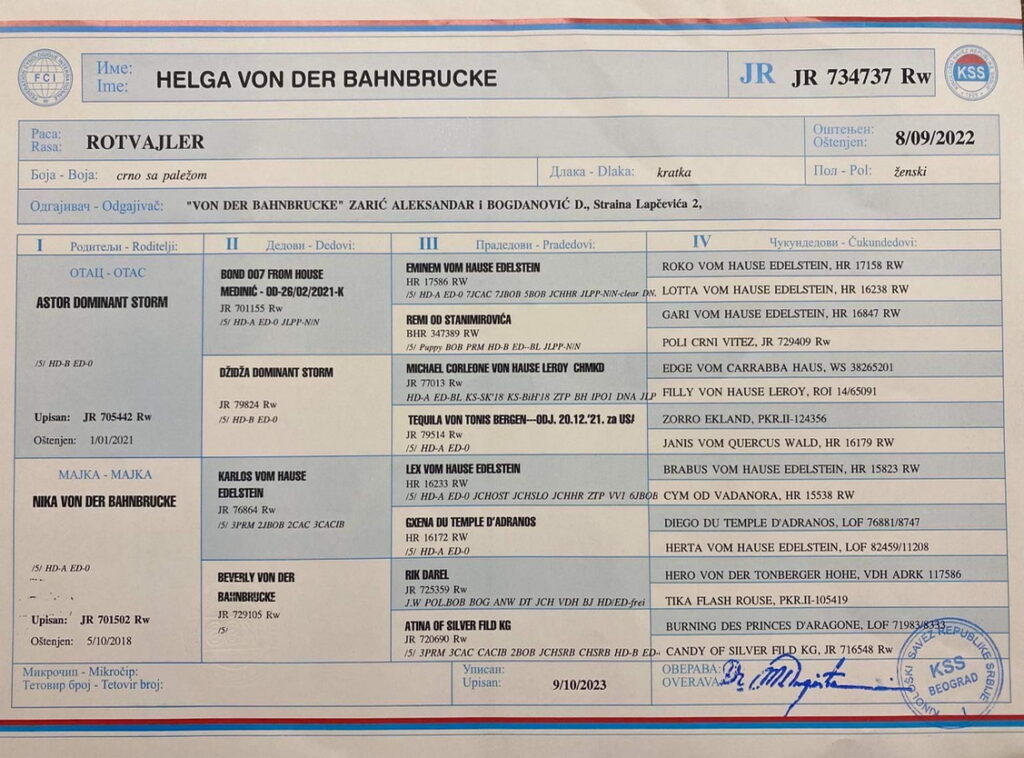 FCI
Име:
Ime:
HELGA VON DER BAHNBRUCKE
JR JR 734737 Rw
KSS
Раса:
Rasa:
ROTVAJLER
Оштењен:
Oštenjen:
8/09/2022
Боја - Boja: crno sa paležom
Длака - Dlaka: kratka
Пол - Pol: ženski
Одгајивач - Odgajivač: "VON DER BAHNBRUCKE" ZARIĆ ALEKSANDAR i BOGDANOVIĆ D., Straina Lapčevića 2,
I Родитељи - Roditelji:
II Дедови - Dedovi:
III Прадедови - Pradedovi:
IV Чукундедови - Čukundedovi:
ОТАЦ - OTAC
ASTOR DOMINANT STORM
/5/ HD-B ED-0
Upisan: JR 705442 Rw
Oštenjen: 1/01/2021
МАЈКА - MAJKA
NIKA VON DER BAHNBRUCKE
/5/ HD-A ED-0
Upisan: JR 701502 Rw
Oštenjen: 5/10/2018
BOND 007 FROM HOUSE
MEDINIĆ - OD-26/02/2021-K
JR 701155 Rw
/5/ HD-A ED-0 JLPP-N/N
DŽIDŽA DOMINANT STORM
JR 79824 Rw
/5/ HD-B ED-0
KARLOS VOM HAUSE
EDELSTEIN
JR 76864 Rw
/5/ 3PRM 2JBOB 2CAC 3CACIB
BEVERLY VON DER
BAHNBRUCKE
JR 729105 Rw
/5/
EMINEM VOM HAUSE EDELSTEIN
HR 17586 RW
/5/ HD-A ED-0 7JCAC 7JBOB 5BOB JCHHR JLPP-N/N-clear DN.
REMI OD STANIMIROVIĆA
BHR 347389 RW
/5/ Puppy BOB PRM HD-B ED--BL JLPP-N/N
MICHAEL CORLEONE VON HAUSE LEROY CHMKD
JR 77013 Rw
HD-A ED-BL KS-SK'18 KS-BiH'18 ZTP BH IPO1 DNA JLP
TEQUILA VON TONIS BERGEN---ODJ. 20.12.'21. za USA
JR 79514 Rw
/5/ HD-A ED-0
LEX VOM HAUSE EDELSTEIN
HR 16233 RW
/5/ HD-A ED-0 JCHOST JCHSLO JCHHR ZTP VV1 6JBOB
GXENA DU TEMPLE D'ADRANOS
HR 16172 RW
/5/ HD-A ED-0
RIK DAREL
JR 725359 Rw
J.W POL.BOB BOG ANW DT JCH VDH BJ HD/ED-frei
ATINA OF SILVER FILD KG
JR 720690 Rw
/5/ 3PRM 3CAC CACIB 2BOB JCHSRB CHSRB HD-B ED-
ROKO VOM HAUSE EDELSTEIN, HR 17158 RW
LOTTA VOM HAUSE EDELSTEIN, HR 16238 RW
GARI VOM HAUSE EDELSTEIN, HR 16847 RW
POLI CRNI VITEZ, JR 729409 Rw
EDGE VOM CARRABBA HAUS, WS 38265201
FILLY VON HAUSE LEROY, ROI 14/65091
ZORRO EKLAND, PKR.II-124356
JANIS VOM QUERCUS WALD, HR 16179 RW
BRABUS VOM HAUSE EDELSTEIN, HR 15823 RW
CYM OD VADANORA, HR 15538 RW
DIEGO DU TEMPLE D'ADRANOS, LOF 76881/8747
HERTA VOM HAUSE EDELSTEIN, LOF 82459/11208
HERO VON DER TONBERGER HOHE, VDH ADRK 117586
TIKA FLASH ROUSE, PKR.II-105419
BURNING DES PRINCES D'ARAGONE, LOF 71983/8333
CANDY OF SILVER FILD KG, JR 716548 Rw
Микрочип - Mikročip:
Тетовир број - Tetovir broj:
Уписан:
Upisan:
9/10/2023
ОВЕРАВА:
OVERAVA:
KINOLOŠKI SAVEZ REPUBLIKE SRBIJE
KSS
BEOGRAD
1